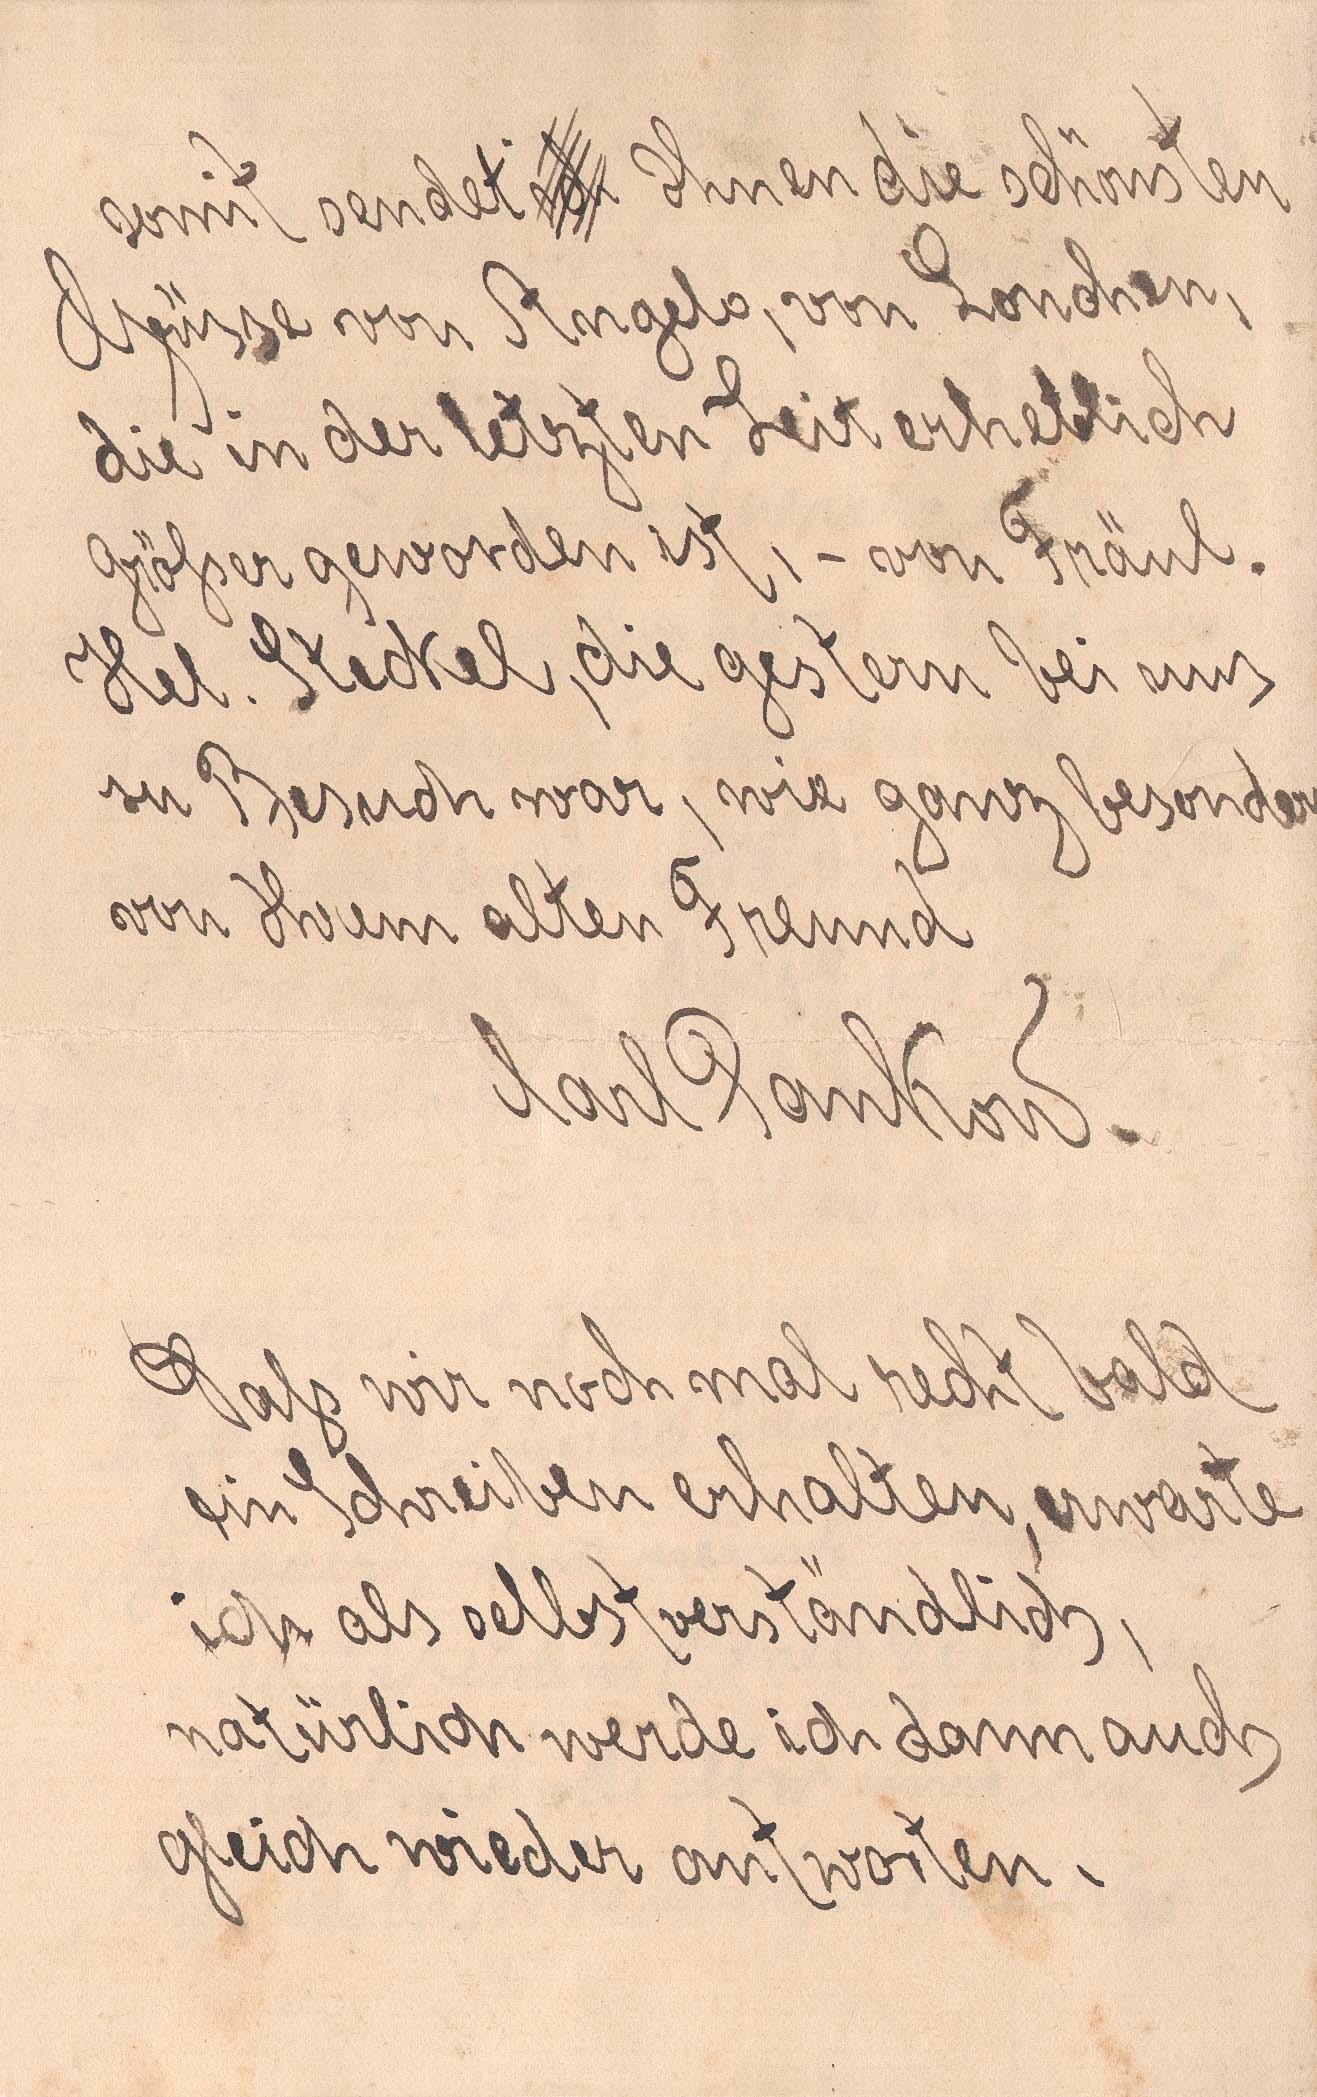 somit sendet Ihnen die schönsten
Grüsse von Angelo, von Lonchen,
die in der letzten Zeit erheblich
größer geworden ist, – von Fräul.
Hel. Steckel, die gestern bei uns
zu Besuch war, wie ganz besonders
von Ihrem alten Freund
Carl Pankow.
Daß wir noch mal recht bald
ein Schreiben erhalten, erwarte
ich als selbstverständlich,
natürlich werde ich dann auch
gleich wieder antworten.